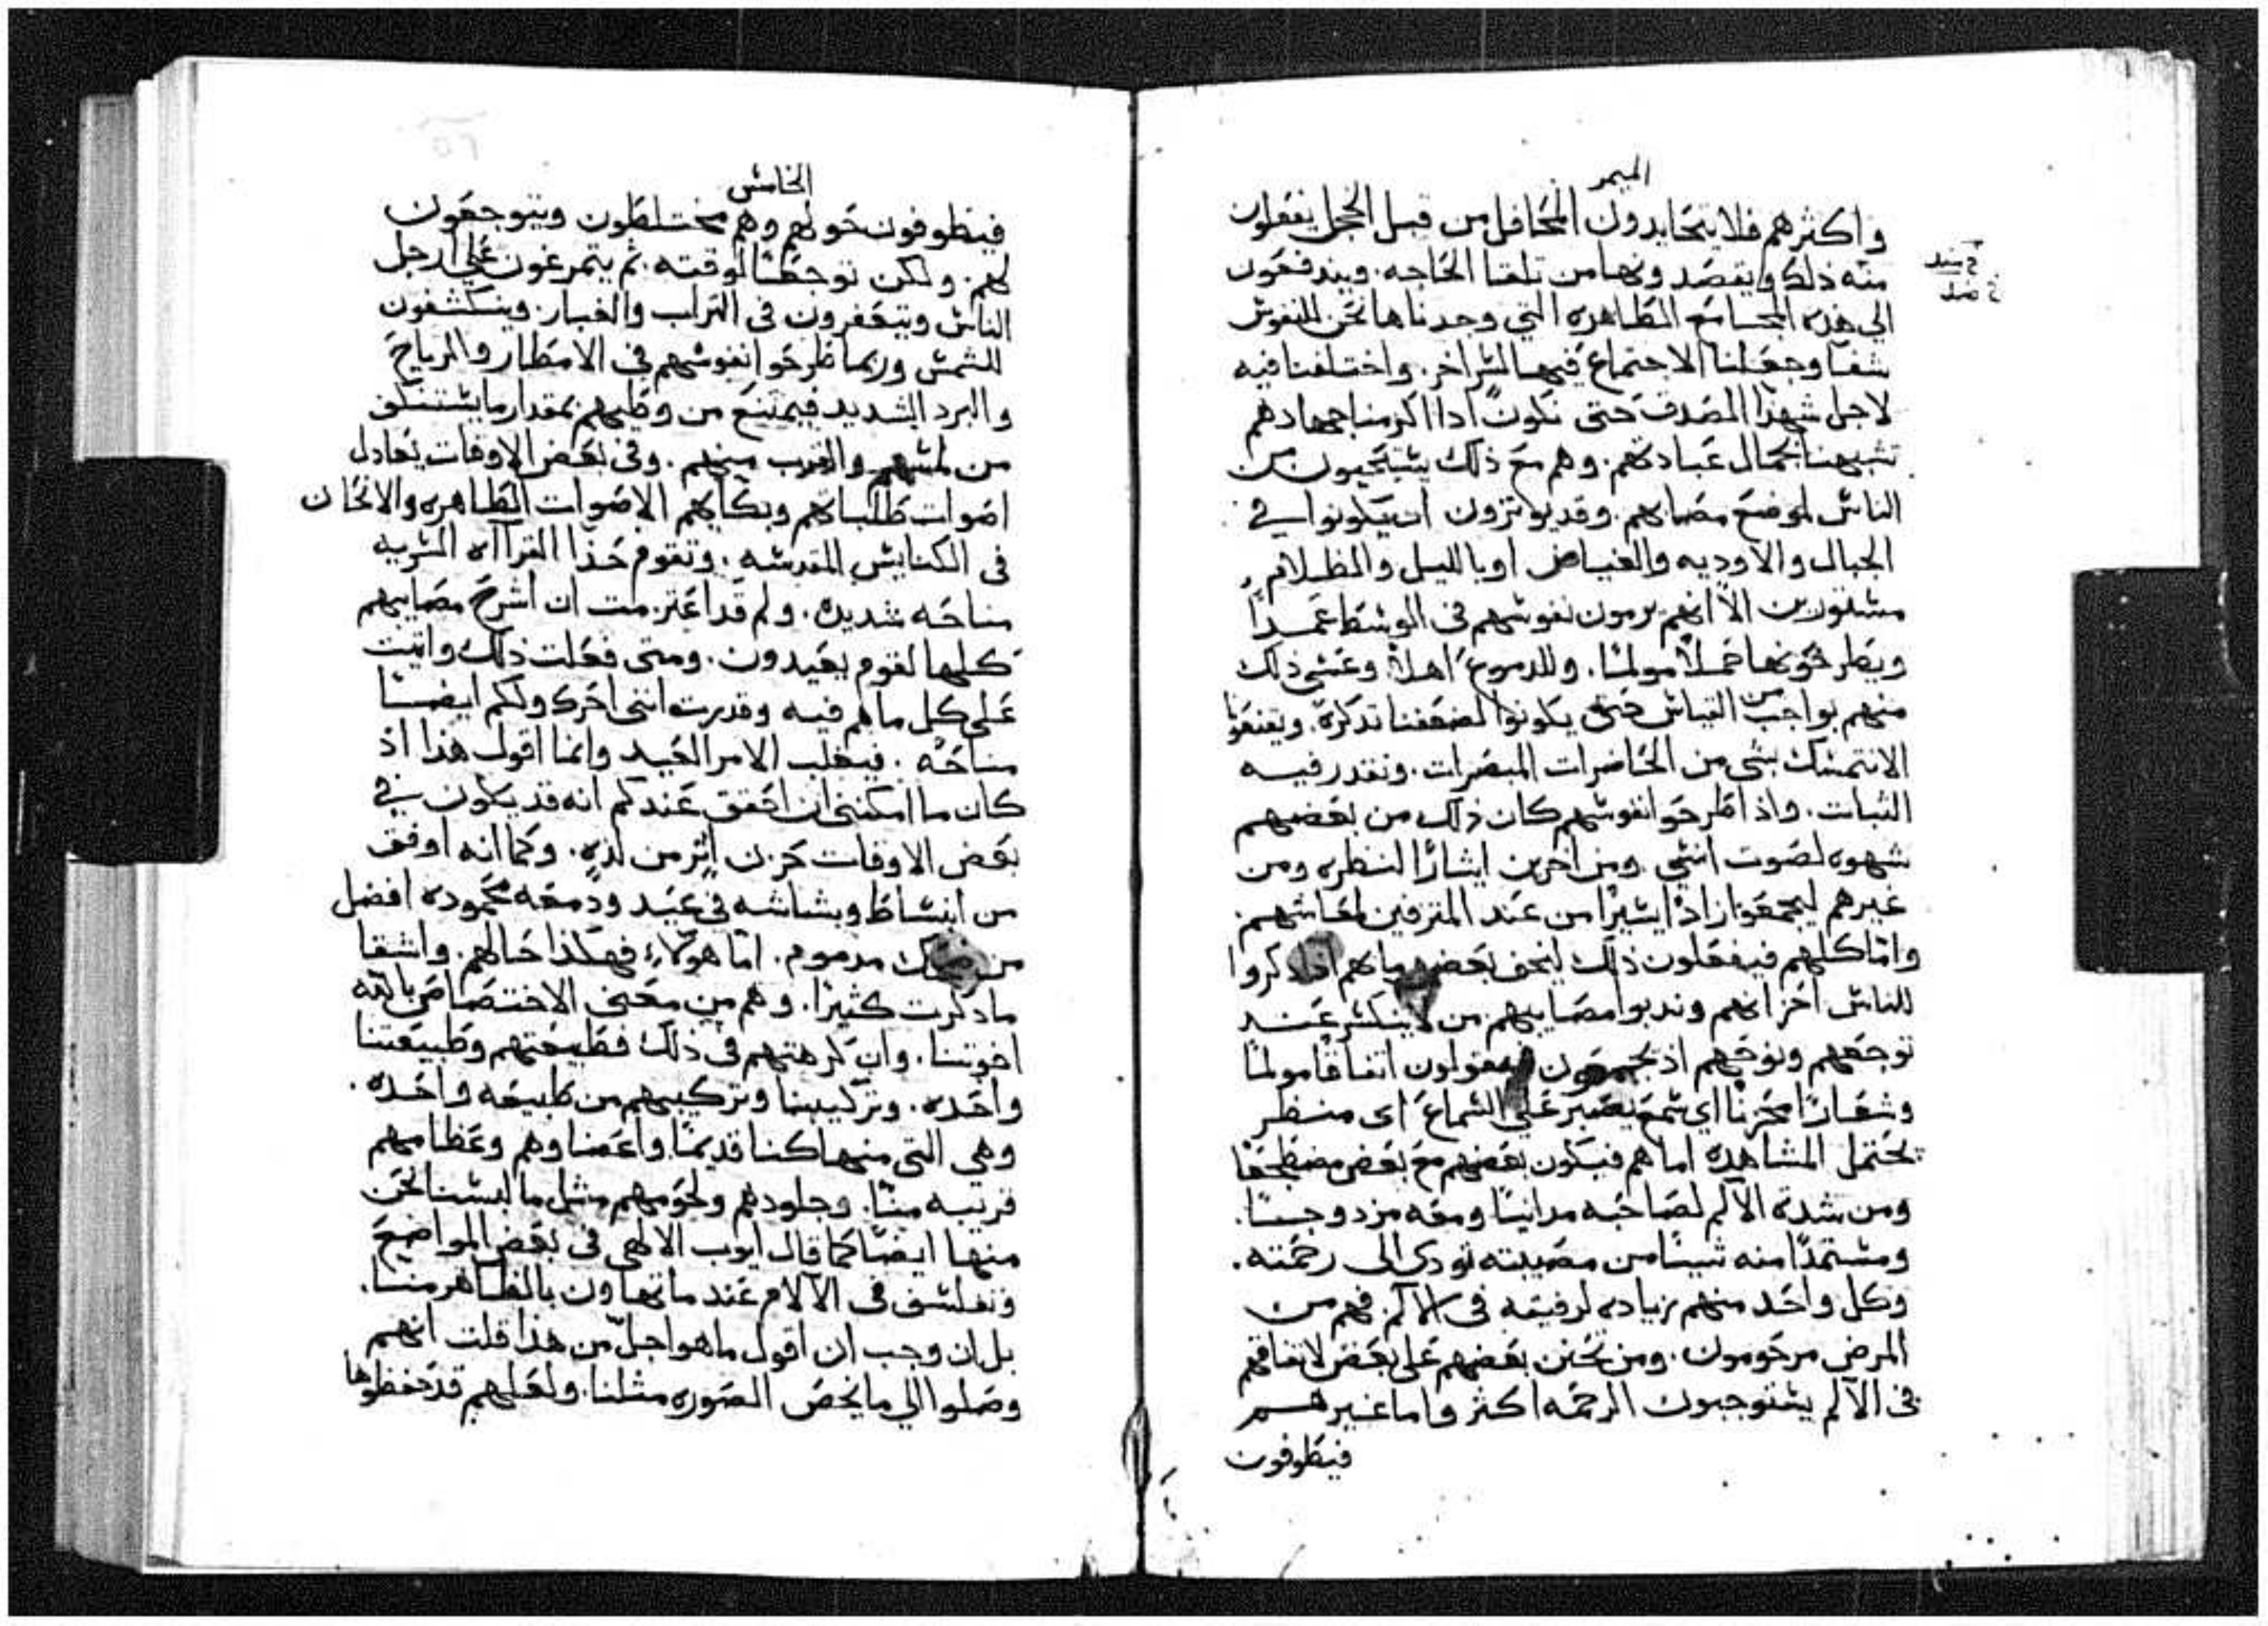 الميمر
واكثرهم فلا يتحايدون المحافل من قبل الخجل يفعلون
منه ذلك ويقصدونها من تلقا الحاجه. ويندفعون
الي هذه المجامع الطاهره التي وجدناها نحن للنفوس
شفا وجعلنا الاجتماع فيها لسر اخر. واختلفنا فيه
لاجل شهدا الصدق حتى نكون اذا اكرمنا جهادهم
تشبهنا بجمال عبادتهم. وهم مع ذلك يستحيون من
الناس لموضع مصابهم. وقد يوثرون ان يكونوا في
الجبال والاوديه والغياض او بالليل والظلام
مستورين الا انهم يرمون نفوسهم في الوسط عمدًا
ويطرحونها حملاً مولمًا. وللدموع اهلاً وعسى ذلك
منهم بواجب من القياس حتى يكونوا لضعفنا تذكرة. ويقنعونا
الانتمسك بشي من الحاضرات المبصرات. ونقدر فيه
الثبات. واذا طرحوا نفوسهم كان ذلك من بعضهم
شهوه لصوت انسي. ومن اخرين ايثارًا لنظره ومن
غيرهم ليجمعوا زادًا يسيرًا من عند المترفين لمعاشهم.
واما كلهم فيفعلون ذلك ليخف بعض ما بهم اذا ذكروا
للناس احزانهم وندبوا مصايبهم من لا ينكسر عند
توجعهم ونوحهم اذ يجمعون ويقولون اتفاقًا مولمًا
وشعارًا محزنًا اي سمع يصبر على السماع اي منظر
يحتمل المشاهده اما هم فيكون بعضهم مع بعض مضطجعًا
ومن شدة الالم لصاحبه مدانيًا ومعه مزدوجًا.
ومستمدًا منه شيئًا من مصيبته تودي الى رحمته.
وكل واحد منهم زياده لرفيقه في الالم. فهم من
المرض مرحومون. ومن تحنن بعضهم على بعض لاتفاقهم
في الالم يستوجبون الرحمه اكثر واما غيرهم
فيطوفون
الخامس
فيطوفون حولهم وهم مختلطون ويتوجعون
لهم. ولكن توجعًا لوقته. ثم يتمرغون علي ارجل
الناس ويتعفرون في التراب والغبار. وينكشفون
للشمس وربما طرحوا نفوسهم في الامطار والرياح
والبرد الشديد فيمتنع من وطيهم بمقدار ما يستنكف
من لمسهم والقرب منهم. وفي بعض الاوقات تعادل
اصوات طلباتهم وبكايهم الاصوات الطاهره والالحان
في الكنايس المقدسه. وتقوم حذا القراآه السريه
مناحه شديده. ولم قد اعتزمت ان اشرح مصايبهم
كلها لقوم بعيدون. ومتى فعلت ذلك واتيت
على كل ما هم فيه وقدرت انني احرك ولكم ايضًا
مناحه. فيغلب الامر العيد وانما اقول هذا اذ
كان ما امكنني ان احقق عندكم انه قد يكون في
بعض الاوقات حزن اثر من لذه. وكما انه اوفق
من انبساط وبشاشه في عيد ودمعه محموده افضل
من ضحك مدموم. اما هولاء فهكذا حالهم. واشقا
ما ذكرت كثيرًا. وهم من معنى الاختصاص بالله
اخوتنا. وان كرهتهم في ذلك فطبيعتهم وطبيعتنا
واحده. وتركيبنا وتركيبهم من طبيعه واحده.
وهي التي منها كنا قديمًا واعضاوهم وعظامهم
قريبه منا. وجلودهم ولحومهم مثل ما لبسنا نحن
منها ايضًا كما قال ايوب الالهي في بعض المواضيع
وتفلسف في الآلام عند ما تهاون بالظاهر منا.
بل ان وجب ان اقول ما هو اجل من هذا قلت انهم
وصلوا الي ما يخص الصوره مثلنا. ولعلهم قد حفظوها